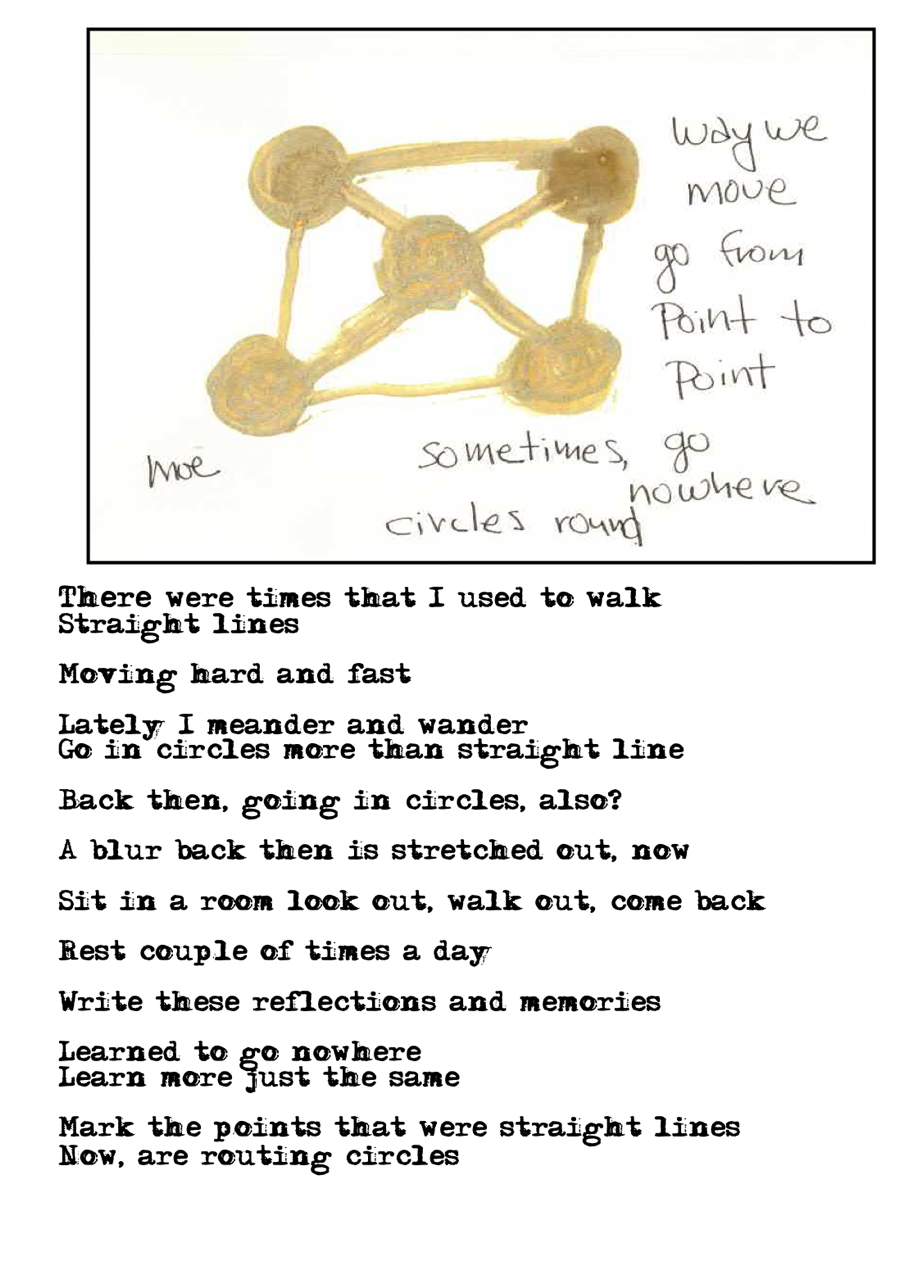 way we
move
go from
Point to
Point
sometimes, go
nowhere
circles round
moe
There were times that I used to walk
Straight lines
Moving hard and fast
Lately I meander and wander
Go in circles more than straight line
Back then, going in circles, also?
A blur back then is stretched out, now
Sit in a room look out, walk out, come back
Rest couple of times a day
Write these reflections and memories
Learned to go nowhere
Learn more just the same
Mark the points that were straight lines
Now, are routing circles